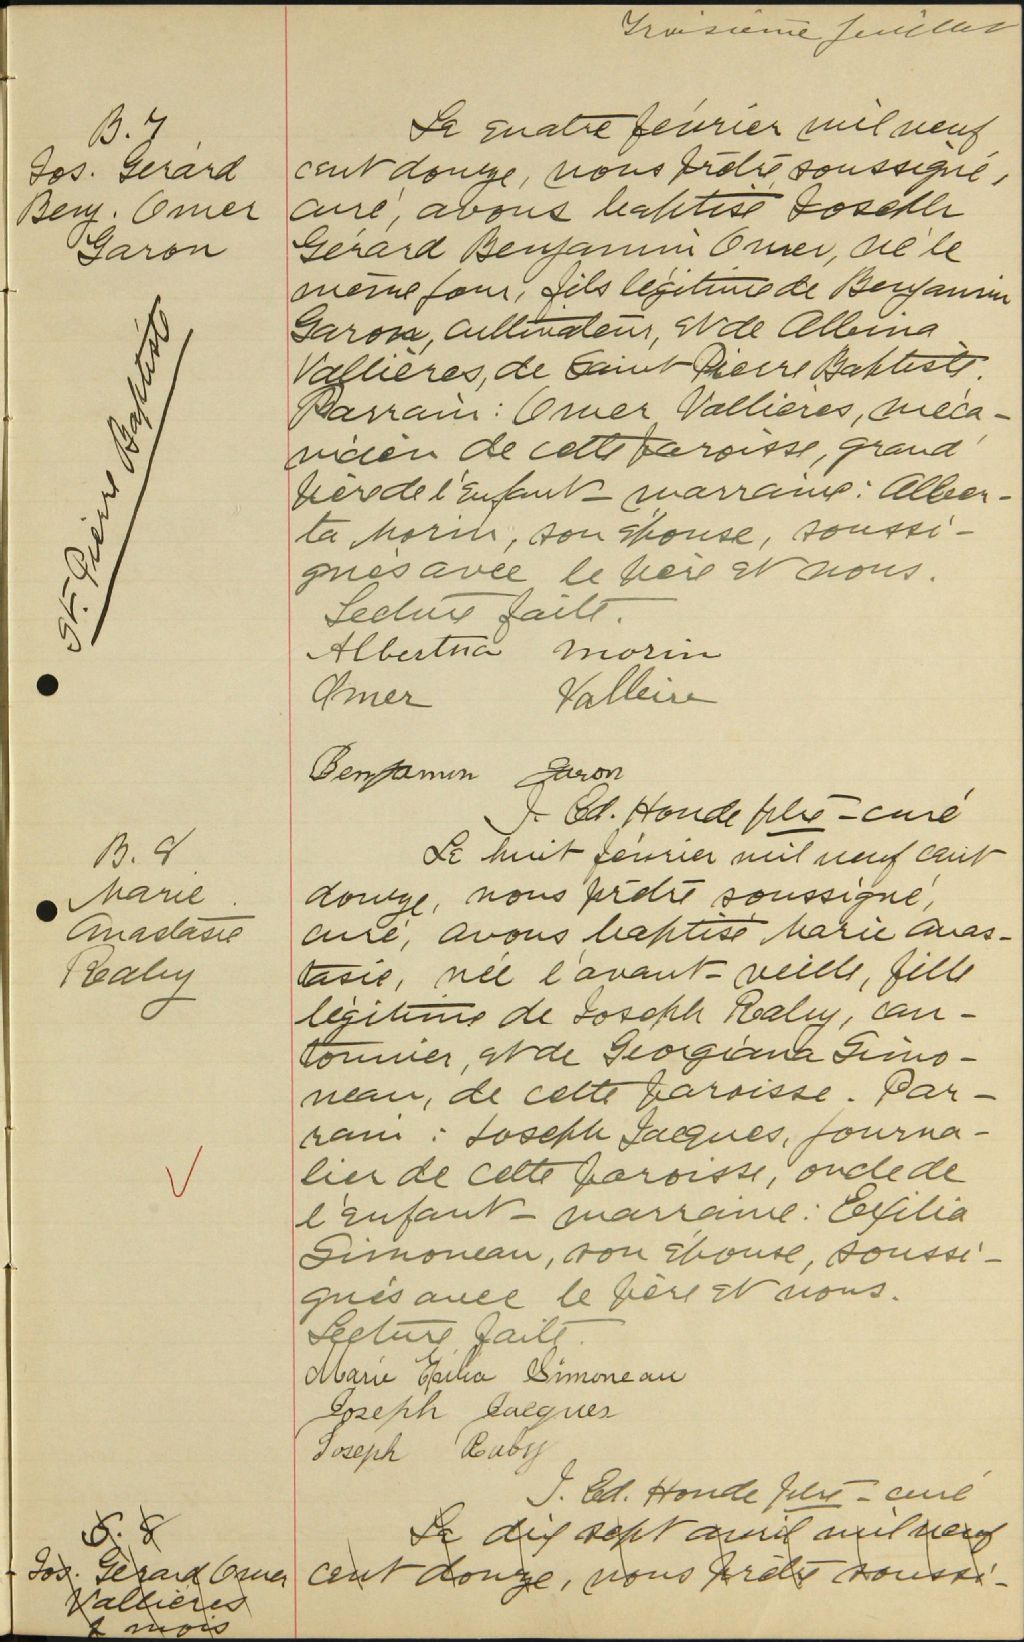 Troisième feuillet
B. 7
Jos. Gérard
Benj. Omer
Garon
St. Pierre Baptiste
Le quatre février mil neuf
cent douze, nous prêtre soussigné,
curé, avons baptisé Joseph
Gérard Benjamin Omer, né le
même jour, fils légitime de Benjamin
Garon, cultivateur, et de Albina
Vallières, de Saint Pierre Baptiste.
Parrain : Omer Vallières, méca-
nicien de cette paroisse, grand
père de l'enfant - marraine : Alber-
ta Morin, son épouse, soussi-
gnés avec le père et nous.
Lecture faite.
Albertna Morin
Omer Valleire
Benjamin Garon
J. Ed. Houde ptre - curé
B. 8
Marie
Anastasie
Raby
Le huit février mil neuf cent
douze, nous prêtre soussigné,
curé, avons baptisé Marie Anas-
tasie, née l'avant-veille, fille
légitime de Joseph Raby, can-
tonnier, et de Géorgiana Simo-
neau, de cette paroisse. Par-
rain : Joseph Jacques, journa-
lier de cette paroisse, oncle de
l'enfant - marraine : Exilia
Simoneau, son épouse, soussi-
gnés avec le père et nous.
Lecture faite.
Marie Exilia Simoneau
Joseph Jacques
Joseph Raby
J. Ed. Houde ptre - curé
Jos. Gérard Omer
Vallières
2 mois
Le dix sept avril mil neuf
cent douze, nous prêtre soussi-